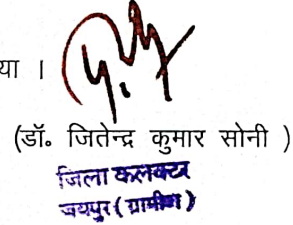 या ।
(डॉ० जितेन्द्र कुमार सोनी )
जिला कलक्टर
जयपुर ( ग्रामीण )